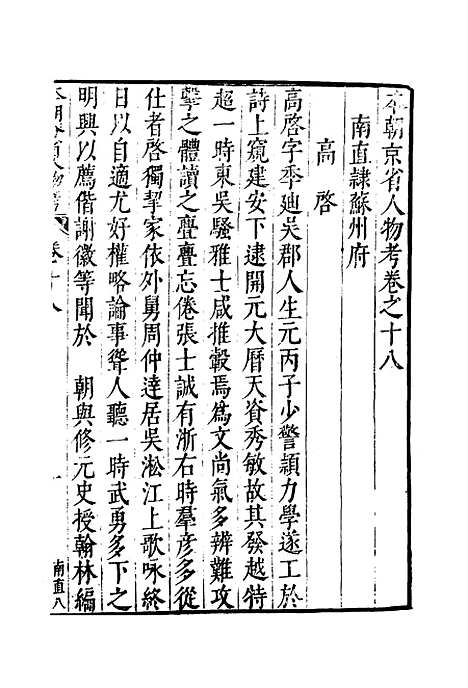 本朝京省人物考卷之十八
南直隷蘇州府
高啓
高啓字季廸吳郡人生元丙子少警穎力學遂工於
詩上窺建安下逮開元大曆天資秀敏故其發越特
超一時東吳騷雅士咸推轂焉爲文尚氣多辨難攻
擊之體讀之亹亹忘倦張士誠有浙右時羣彦多從
仕者啓獨挈家依外舅周仲達居吳淞江上歌咏終
日以自適尤好權略論事聳人聽一時武勇多下之
明興以薦偕謝徽等聞於　朝與修元史授翰林編
卷十八
一
南直八